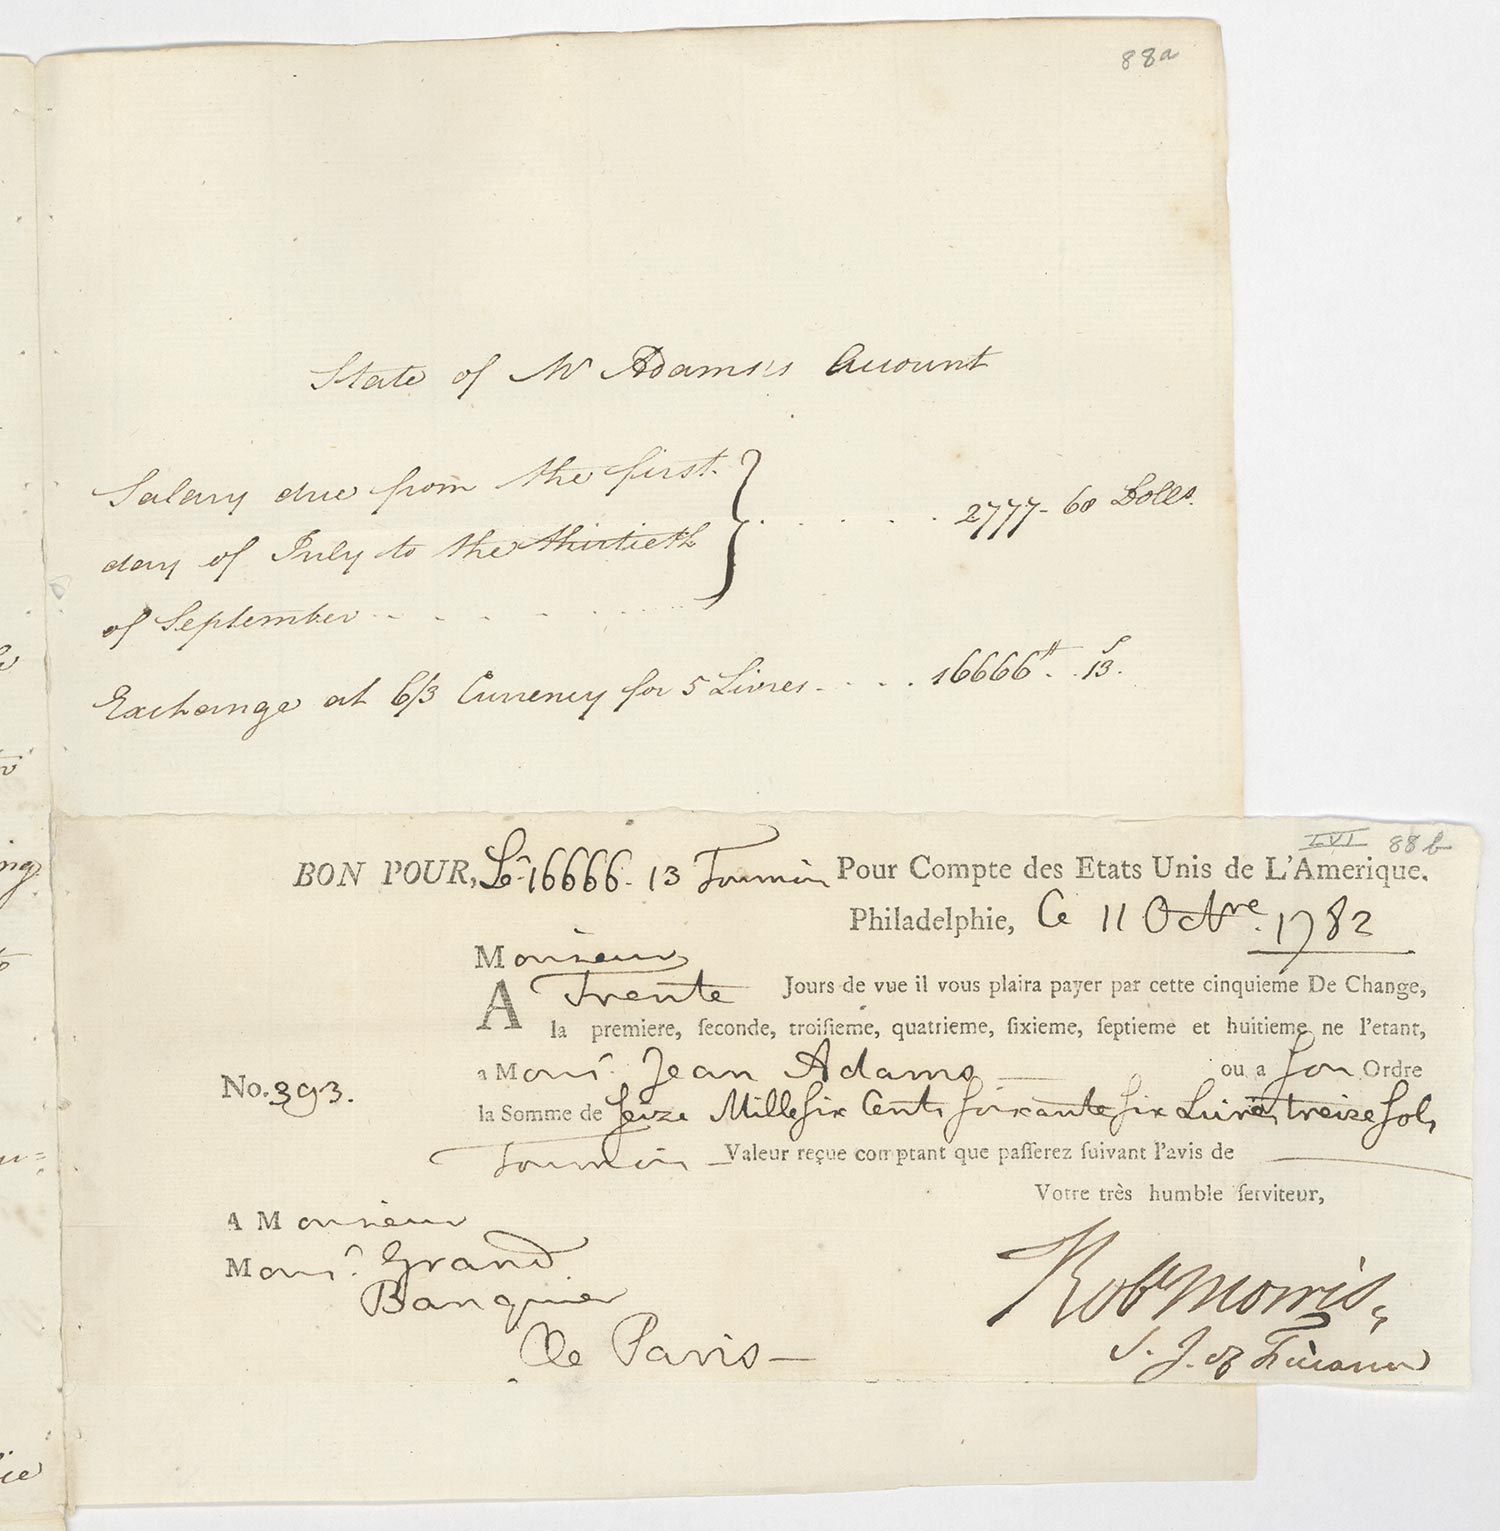 88a
State of Mr Adams's Account
Salary due from the first
day of July to the thirtieth
of September
2777-60 Dolls.
Exchange at 6/3 Currency for 5 Livres . . . . 16666tt . . 13s.
LVI 88b
BON POUR, Ls. 16666. 13 Tournois Pour Compte des Etats Unis de L'Amerique.
Philadelphie, Ce 11 Octre. 1782
Monsieur
A Trente Jours de vue il vous plaira payer par cette cinquieme De Change,
la premiere, ſeconde, troiſieme, quatrieme, ſixieme, ſeptieme et huitieme ne l'etant,
a Monsr. Jean Adams ou a Son Ordre
No. 393.
la Somme de Seize Mille Six Cents Soixante Six Livres, treize Sols,
Tournois Valeur reçue comptant que paſſerez ſuivant l'avis de
Votre très humble ſerviteur,
A Monsieur
Monsr. Grand
Banquier
a Paris
Robt Morris,
S. J. of Finance